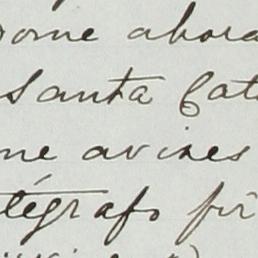 ome ahora
Santa Cat
me avises
tégrafo fir